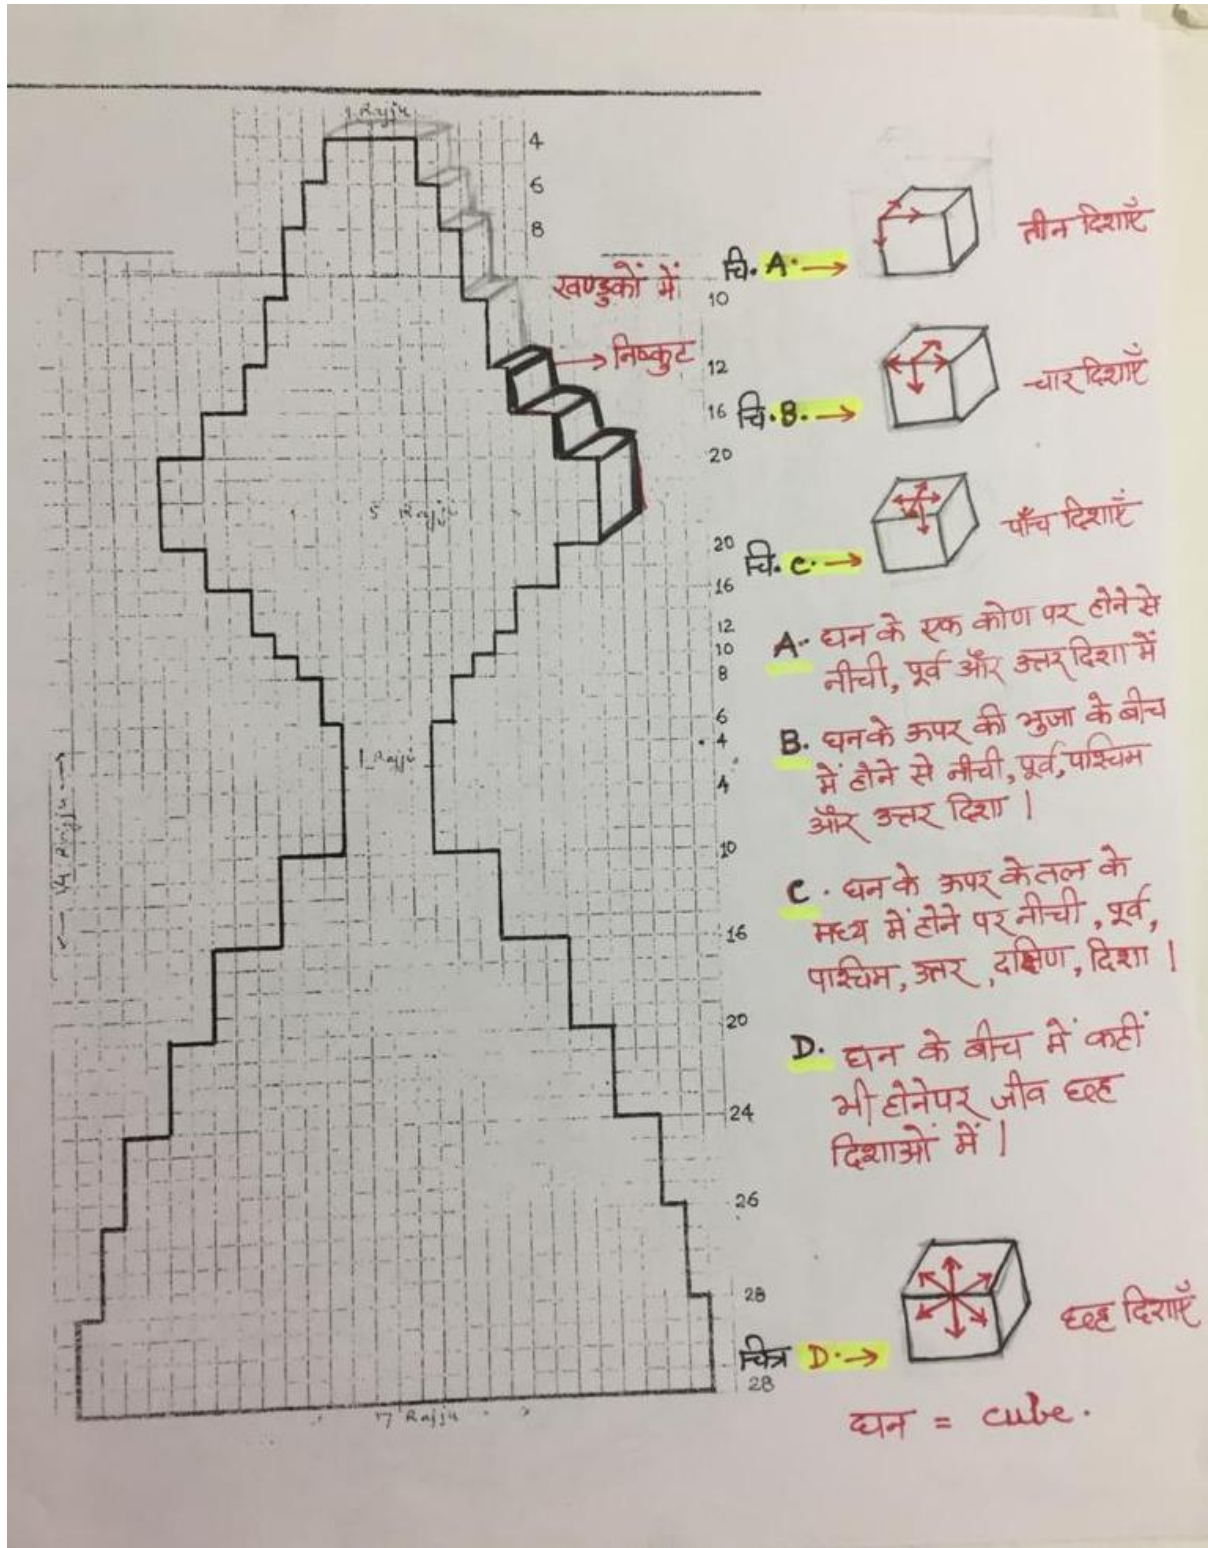 1 Rajju
4
6
8
खण्डुकों में
10
निष्कुट
12
16
20
5 Rajju
20
16
12
10
8
6
4
1 Rajju
4
14 Rajju
10
16
20
24
26
28
28
7 Rajju
चि. A. →
तीन दिशाएँ
चि. B. →
चार दिशाएँ
चि. C. →
पाँच दिशाएँ
A. घन के एक कोण पर होने से
नीची, पूर्व और उत्तर दिशा में
B. घनके ऊपर की भुजा के बीच
में होने से नीची, पूर्व, पाश्चिम
और उत्तर दिशा |
C. घन के ऊपर के तल के
मध्य में होने पर नीची, पूर्व,
पाश्चिम, उत्तर, दक्षिण, दिशा |
D. घन के बीच में कहीं
भी होनेपर जीव छह
दिशाओं में |
चित्र D. →
छह दिशाएँ
घन = cube.